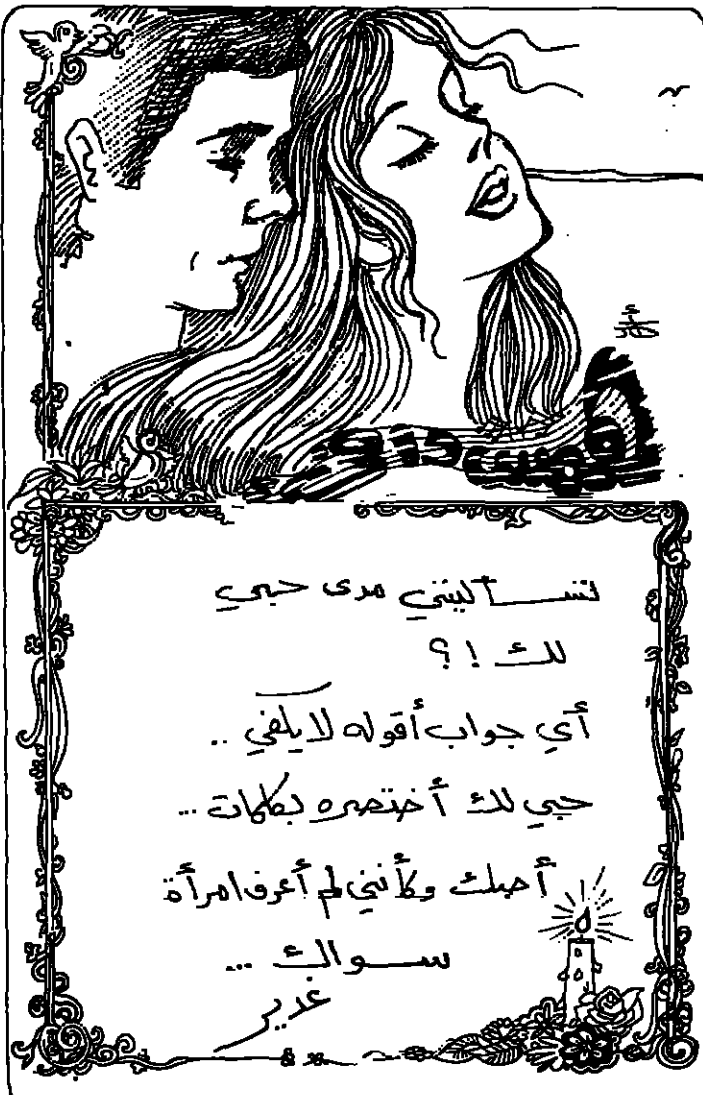 تسـألينني مدى حبي
لك ! ؟
أي جواب أقوله لا يكفي ..
حبي لك أختصره بكلمات ...
أحبك وكأنني لم أعرف امرأة
سـواك ...
غدير